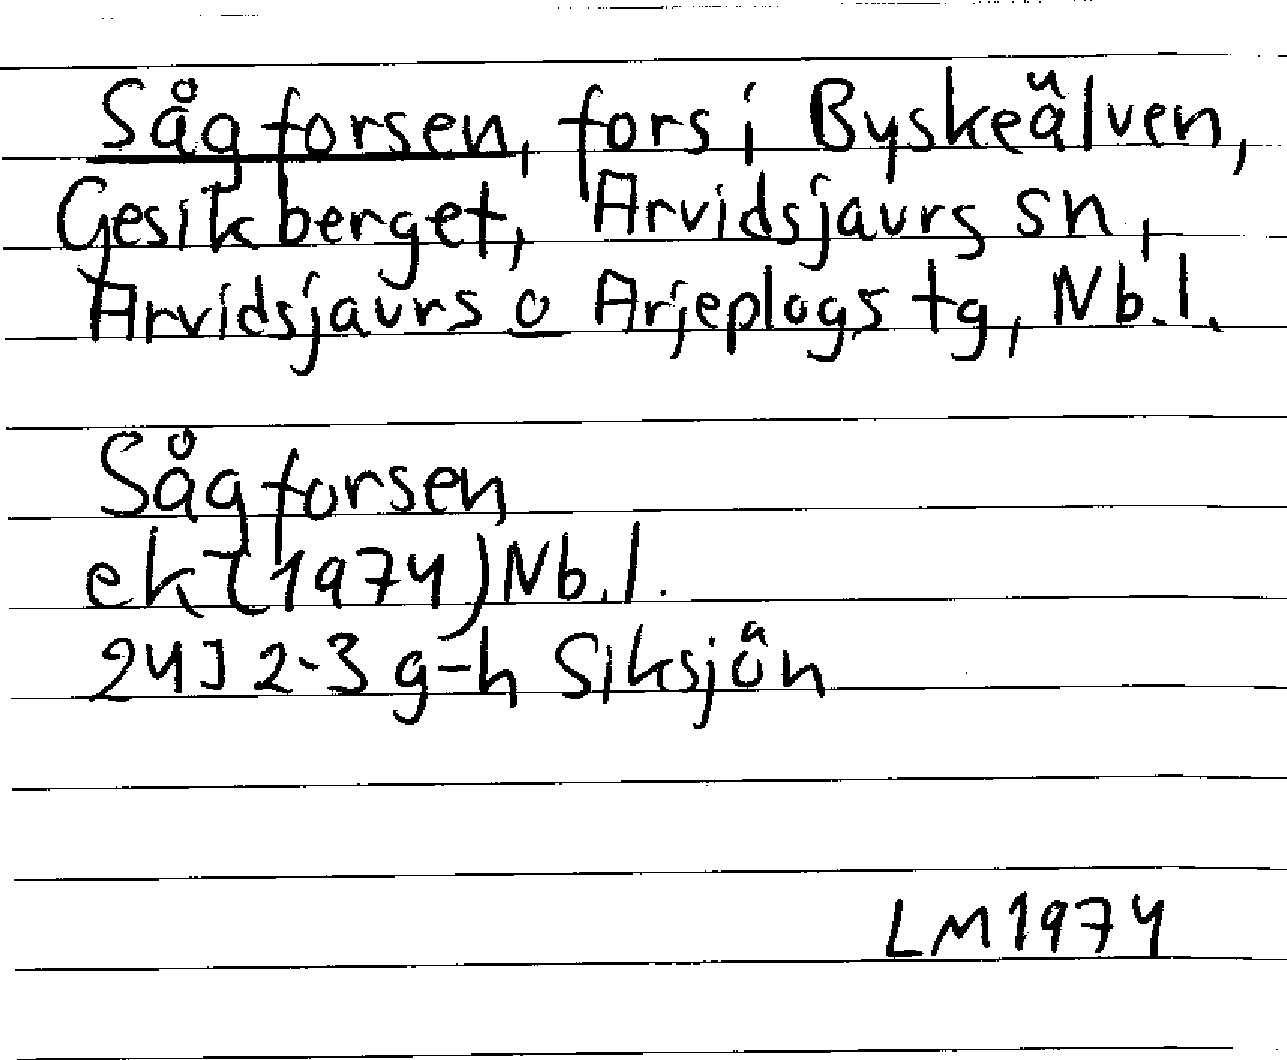 Sågforsen, fors i Byskeälven,
Gesikberget, Arvidsjaurs sn,
Arvidsjaurs o Arjeplogs tg, Nb.l.
Sågforsen
ek (1974) Nb.l.
24J 2-3 g-h Siksjön
LM 1974